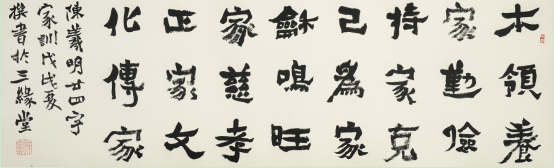 本領養
家勤儉
持家克
己爲家
龢鳴旺
家慈孝
正家文
化傳家
陳羲明廿四字
家訓戊戌夏
撰書於三緣堂